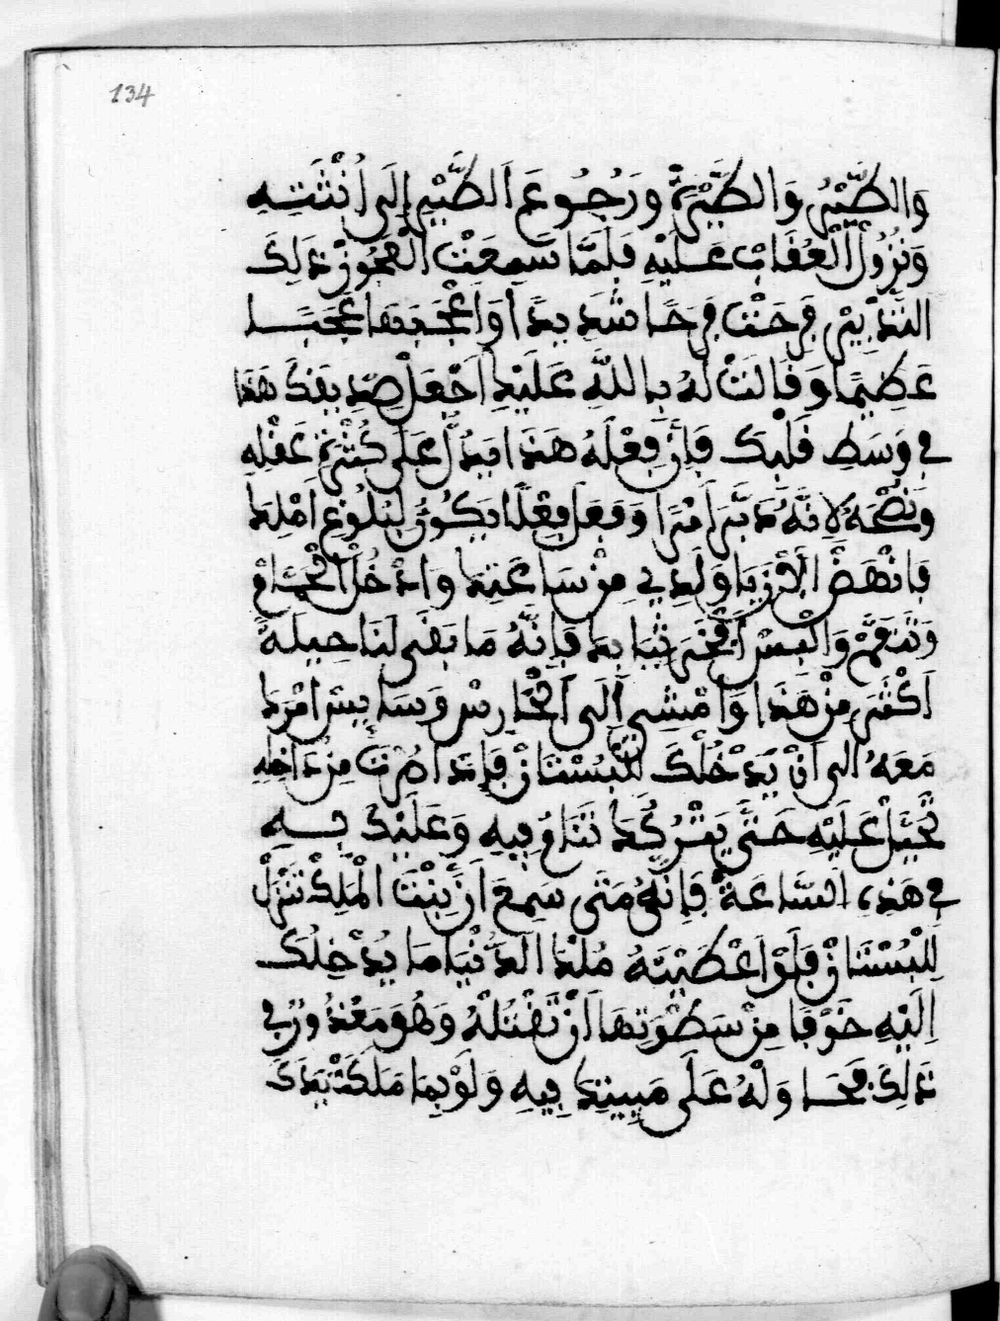 134
وَالطَّيْرُ وَالطَّيْرَةُ وَرُجُوعَ الطَّيْرِ إِلَى أُنْثَتِهِ
وَنُزُولُ الْعُقَابُ عَلَيْهِ فَلَمَّا سَمِعَتْ الْعَجُوزْ ذَالِكَ
التَّدْبِيرْ فَرِحَتْ فَرِحًا شَدِيدًا وَاعْجَبَهَا عَجَبًا
عَظِيمًا وَقَالَتْ لَهُ بِاللَّهِ عَلَيْكَ اجْعَلْ صَدِيقَكَ هَذَا
فِي وَسَطِ قَلْبِكَ فَإِنَّ فِعْلَهُ هَذَا يَدُلُّ عَلَى كُثْرَةِ عَقْلِهِ
وَنُصْحَهُ لِانَّهُ دَبَّرَ أَمْرًا وَفَعَلَ فِعْلًا يَكُونُ لِبُلُوغِ امَلِكَ
فَانْهَضْ الْآنَ يَا وَلَدِي مِنْ سَاعَتِكَ وَادْخُلْ الْحَمَّامْ
وَتَنَعَّمْ وَالْبِسْ أَفْخَرَ ثِيَابِكَ فَإِنَّهُ مَا بَقَى لَنَا حِيلَةً
أَكْثَرَ مِنْ هَذَا وَامْشِي إِلَى الْحَارِسْ وَسَايِسْ امْرَكَ
مَعَهُ الى انْ يَدْخُلْكَ لِلْبُسْتَانْ فَإِذَا صُرْتَ مِنْ دَاخِلِهِ
تَحَيَّلْ عَلَيْهِ حَتَّى يَتْرُكَكَ تَنَامُ فِيهِ وَعَلَيْكَ بِهِ
فِي هَذِهِ السَّاعَةْ فَإِنَّهُ مَتَى سَمِعَ انَّ بِنْتَ الْمَلِكْ تَنْزَلْ
لِلْبُسْتَانْ فَلَوْ اعْطَيْتَهُ مُلْكَ الدُّنْيَا مَا يُدْخِلُكَ
إِلَيْهِ خَوْفًا مِنْ سَطْوَتِهَا أَنْ تَقْتُلَهُ وَهُوَ مَعْذُورْ فِي
ذَالِكَ فَحَاوَلْهُ عَلَى مَبِيتِكَ فِيهِ وَلَوْ بِمَا مَلَكَتْ يَدَكَ